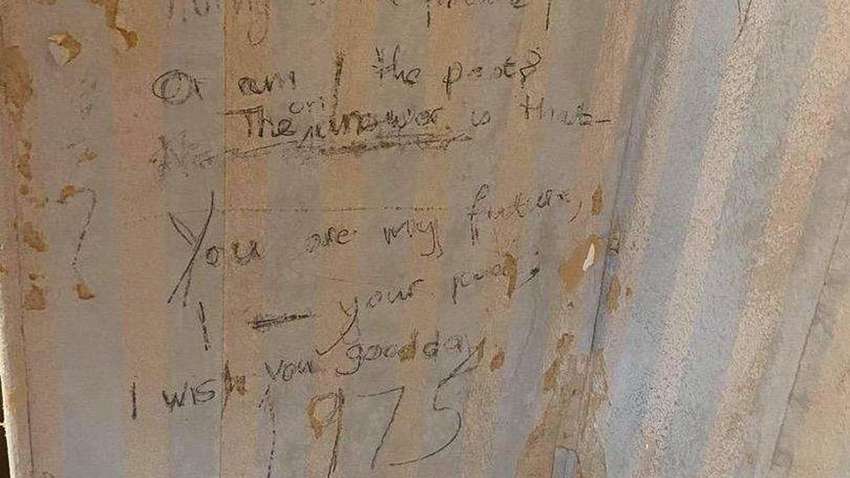 Or am I the past?
The only answer is that
No
You are my future,
I your past;
I wish you good day.
1975